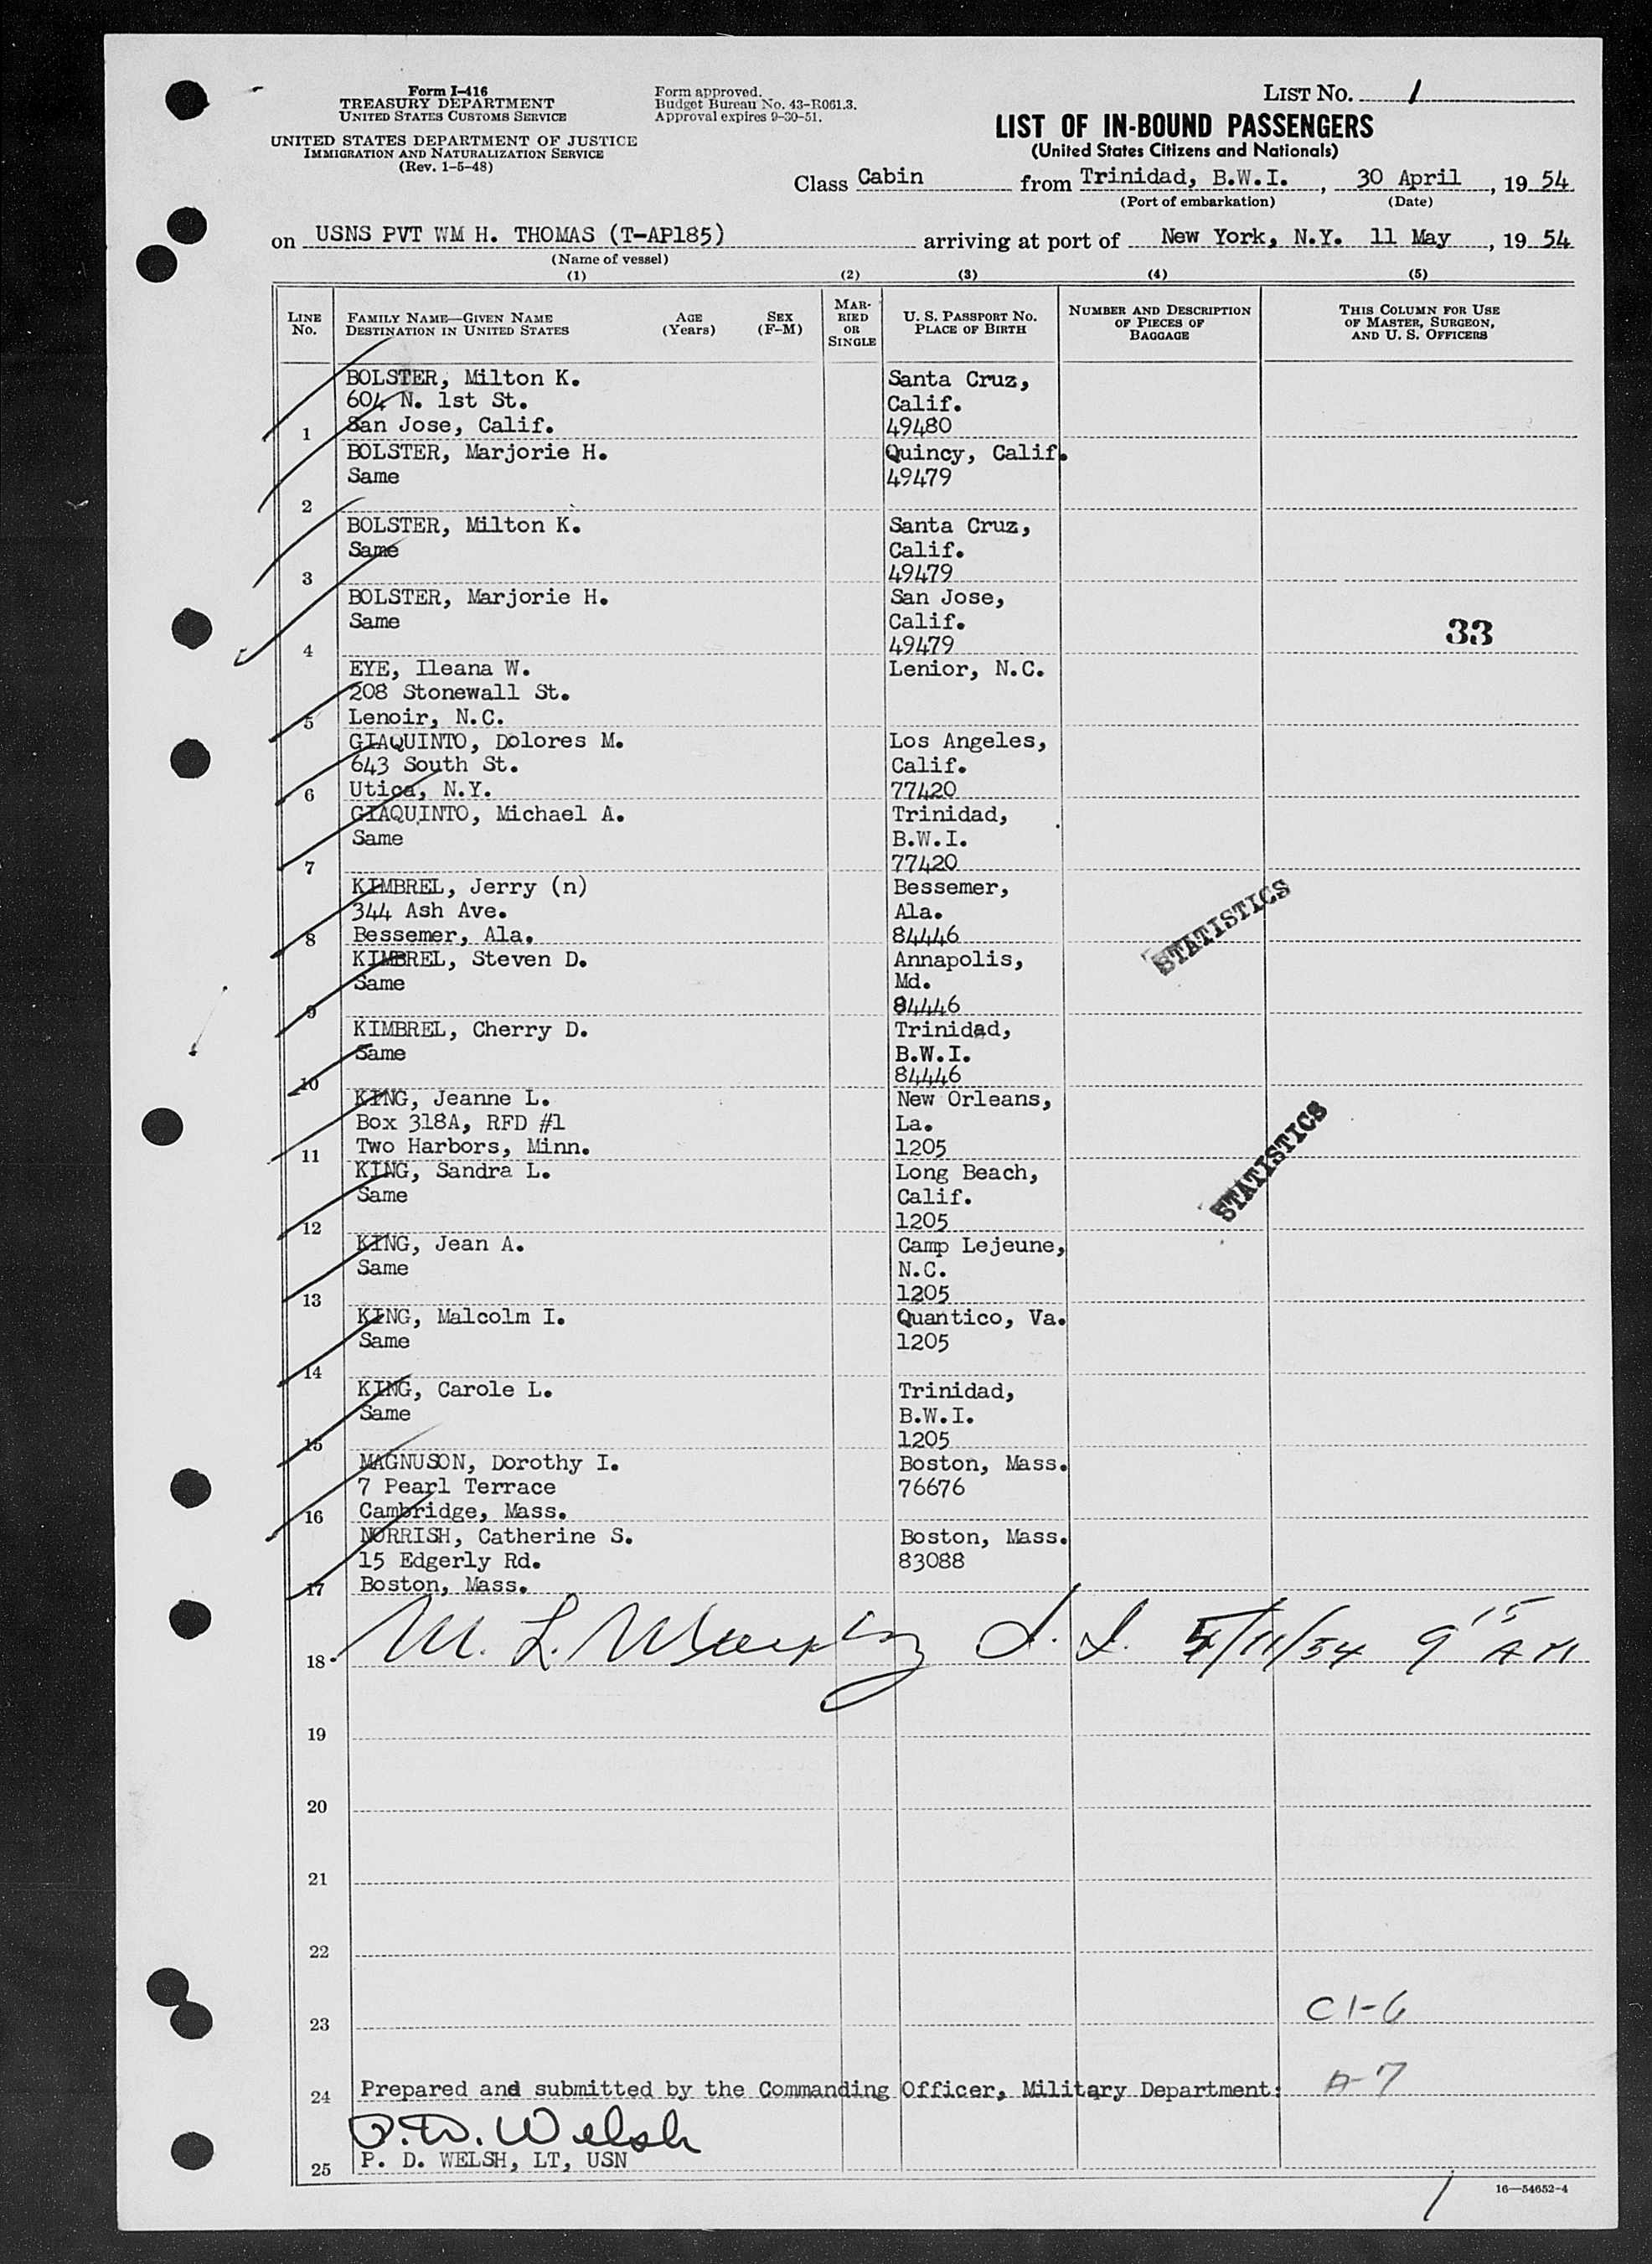 Form I-416
TREASURY DEPARTMENT
UNITED STATES CUSTOMS SERVICE
UNITED STATES DEPARTMENT OF JUSTICE
IMMIGRATION AND NATURALIZATION SERVICE
(Rev. 1-5-48)
Form approved.
Budget Bureau No. 43-R061.3.
Approval expires 9-30-51.
LIST No. 1
LIST OF IN-BOUND PASSENGERS
(United States Citizens and Nationals)
Class Cabin from Trinidad, B.W.I., 30 April, 19 54
(Port of embarkation) (Date)
on USNS PVT WM H. THOMAS (T-AP185) arriving at port of New York, N.Y. 11 May, 19 54
(Name of vessel)
(1) (2) (3) (4) (5)
LINE No.
FAMILY NAME—GIVEN NAME
DESTINATION IN UNITED STATES
AGE (Years)
SEX (F-M)
MARRIED OR SINGLE
U. S. PASSPORT No.
PLACE OF BIRTH
NUMBER AND DESCRIPTION OF PIECES OF BAGGAGE
THIS COLUMN FOR USE OF MASTER, SURGEON, AND U. S. OFFICERS
BOLSTER, Milton K. Santa Cruz,
604 N. 1st St. Calif.
1 San Jose, Calif. 49480
BOLSTER, Marjorie H. Quincy, Calif.
Same 49479
2
BOLSTER, Milton K. Santa Cruz,
Same Calif.
3 49479
BOLSTER, Marjorie H. San Jose,
Same Calif.
4 49479
33
EYE, Ileana W. Lenior, N.C.
208 Stonewall St.
5 Lenoir, N.C.
GIAQUINTO, Dolores M. Los Angeles,
643 South St. Calif.
6 Utica, N.Y. 77420
GIAQUINTO, Michael A. Trinidad,
Same B.W.I.
7 77420
KIMBREL, Jerry (n) Bessemer,
344 Ash Ave. Ala.
8 Bessemer, Ala. 84446
STATISTICS
KIMBREL, Steven D. Annapolis,
Same Md.
9 84446
KIMBREL, Cherry D. Trinidad,
Same B.W.I.
10 84446
KING, Jeanne L. New Orleans,
Box 318A, RFD #1 La.
11 Two Harbors, Minn. 1205
STATISTICS
KING, Sandra L. Long Beach,
Same Calif.
12 1205
KING, Jean A. Camp Lejeune,
Same N.C.
13 1205
KING, Malcolm I. Quantico, Va.
Same 1205
14
KING, Carole L. Trinidad,
Same B.W.I.
15 1205
MAGNUSON, Dorothy I. Boston, Mass.
7 Pearl Terrace 76676
16 Cambridge, Mass.
NORRISH, Catherine S. Boston, Mass.
15 Edgerly Rd. 83088
17 Boston, Mass.
18 M. L. Murphy 5/11/54 9 15 AM
19
20
21
22
23 C 1-6
24 Prepared and submitted by the Commanding Officer, Military Department: A-7
P.D. Welsh
25 P. D. WELSH, LT, USN
1
16—54652-4